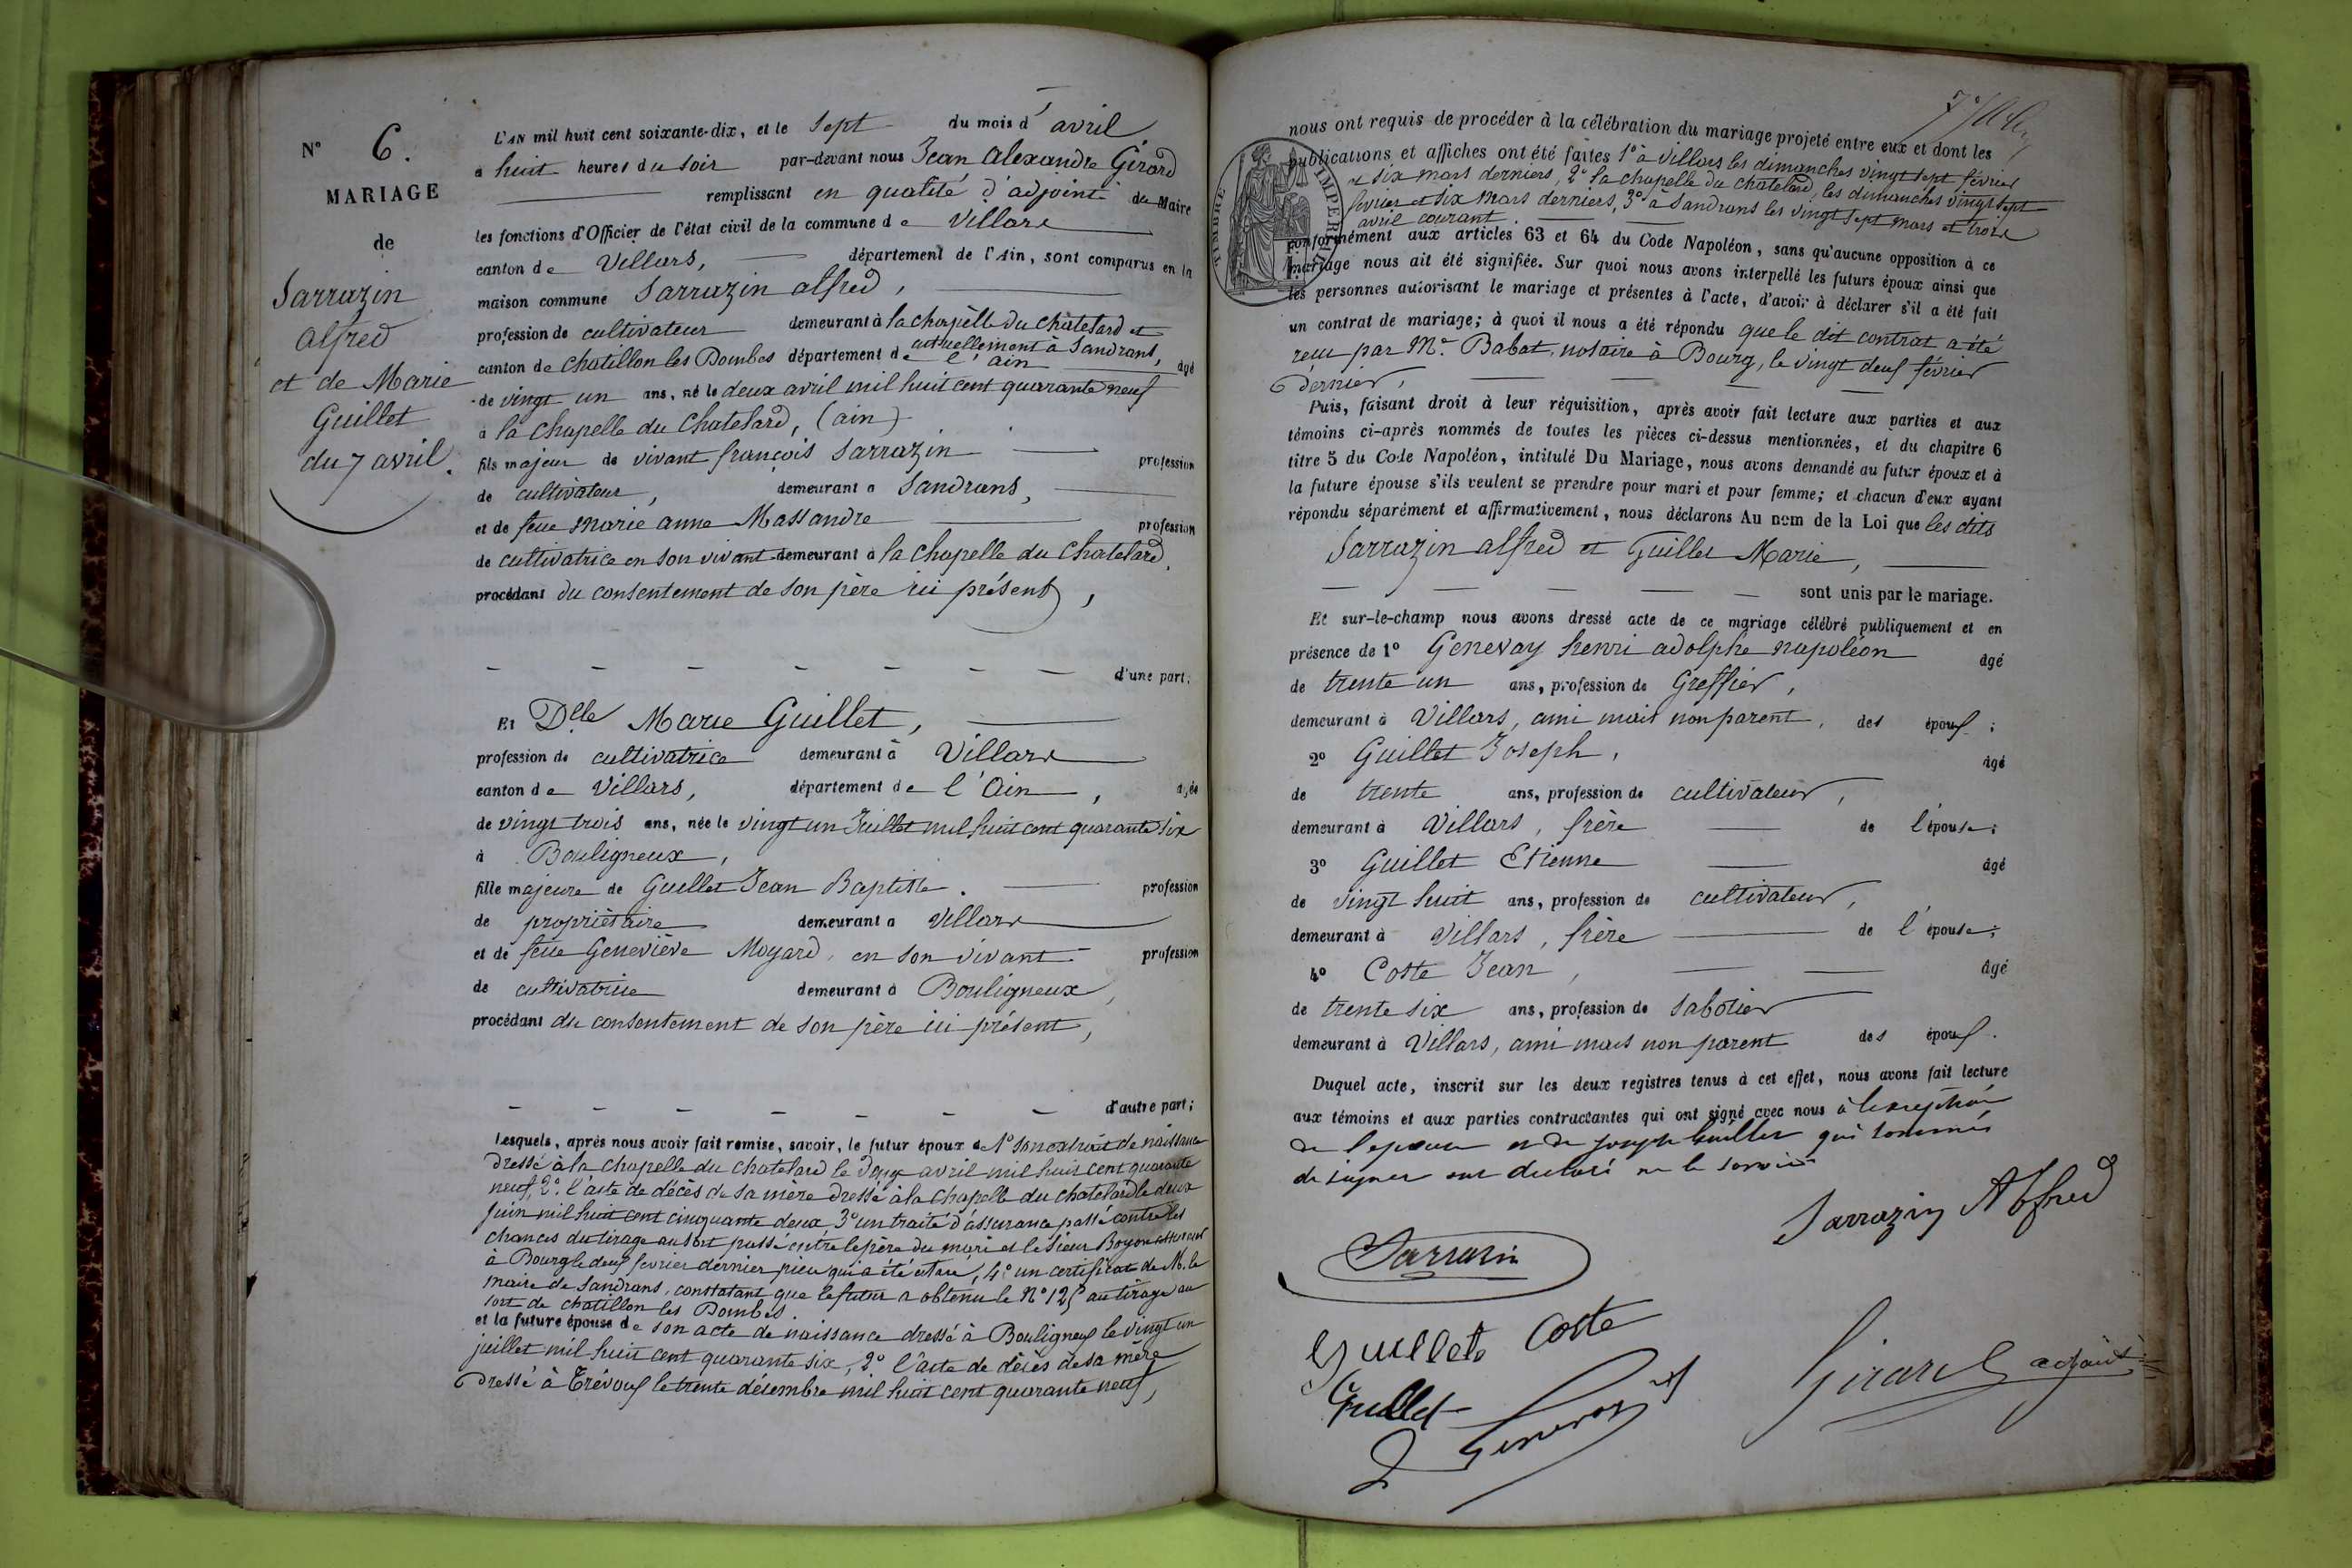 N° 6.
MARIAGE
de
Sarrazin
alfred
et de Marie
Guillet
du 7 avril.
L'AN mil huit cent soixante-dix, et le sept du mois d'avril
à huit heures du soir par-devant nous Jean Alexandre Girard
remplissant en qualité d'adjoint du Maire
les fonctions d'Officier de l'état civil de la commune de Villars
canton de Villars, département de l'Ain, sont comparus en la
maison commune Sarrazin alfred,
profession de cultivateur demeurant à la chapelle du châtelard et
actuellement à Sandrans,
canton de chatillon les Dombes département de l'ain âgé
de vingt un ans, né le deux avril mil huit cent quarante neuf
à la chapelle du Chatelard, (ain)
fils majeur de vivant françois Sarrazin profession
de cultivateur, demeurant à Sandrans,
et de feue Marie anne Massandre profession
de cultivatrice en son vivant demeurant à la chapelle du Chatelard,
procédant du consentement de son père ici présent,
d'une part;
Et Dlle Marie Guillet,
profession de cultivatrice demeurant à Villars
canton de Villars, département de l'Ain, âgée
de vingt trois ans, née le vingt un Juillet mil huit cent quarante six
à Bouligneux,
fille majeure de Guillet Jean Baptiste. profession
de propriétaire demeurant à Villars
et de feue Geneviève Moyard, en son vivant profession
de cultivatrice demeurant à Bouligneux,
procédant du consentement de son père ici présent,
d'autre part;
Lesquels, après nous avoir fait remise, savoir, le futur époux de 1° son extrait de naissance
dressé à la chapelle du chatelard le deux avril mil huit cent quarante
neuf, 2° l'acte de décès de sa mère dressé à la chapelle du chatelard le deux
juin mil huit cent cinquante deux, 3° un traité d'assurance passé contre les
chances du tirage au sort passé entre le père du mari et le sieur assureur
à Bourg le deux février dernier 4° un certificat de M. le
maire de Sandrans, constatant que le futur a obtenu le N° 125 au tirage au
sort de chatillon les Dombes.
et la future épouse de son acte de naissance dressé à Bouligneux le vingt un
juillet mil huit cent quarante six, 2° l'acte de décès de sa mère
dressé à Trévoux le trente décembre mil huit cent quarante neuf,
TIMBRE IMPERIAL
nous ont requis de procéder à la célébration du mariage projeté entre eux et dont les
publications et affiches ont été faites 1° à Villars les dimanches vingt sept février
et six mars derniers, 2° la chapelle du chatelard, les dimanches vingt sept
février et six mars derniers, 3° à Sandrans les vingt sept mars et trois
avril courant.
conformément aux articles 63 et 64 du Code Napoléon, sans qu'aucune opposition à ce
mariage nous ait été signifiée. Sur quoi nous avons interpellé les futurs époux ainsi que
les personnes autorisant le mariage et présentes à l'acte, d'avoir à déclarer s'il a été fait
un contrat de mariage; à quoi il nous a été répondu que le dit contrat a été
reçu par Me Babat, notaire à Bourg, le vingt deux février
dernier,
Puis, faisant droit à leur réquisition, après avoir fait lecture aux parties et aux
témoins ci-après nommés de toutes les pièces ci-dessus mentionnées, et du chapitre 6
titre 5 du Code Napoléon, intitulé Du Mariage, nous avons demandé au futur époux et à
la future épouse s'ils veulent se prendre pour mari et pour femme; et chacun d'eux ayant
répondu séparément et affirmativement, nous déclarons Au nom de la Loi que les dits
Sarrazin alfred et Guillet Marie,
sont unis par le mariage.
Et sur-le-champ nous avons dressé acte de ce mariage célébré publiquement et en
présence de 1° Genevay henri adolphe napoléon âgé
de trente un ans, profession de Greffier,
demeurant à Villars, ami mais non parent, des époux;
2° Guillet Joseph, âgé
de trente ans, profession de cultivateur,
demeurant à Villars, frère de l'épouse;
3° Guillet Etienne âgé
de vingt huit ans, profession de cultivateur,
demeurant à Villars, frère de l'épouse;
4° Coste Jean, âgé
de trente six ans, profession de sabotier
demeurant à Villars, ami mais non parent des époux.
Duquel acte, inscrit sur les deux registres tenus à cet effet, nous avons fait lecture
aux témoins et aux parties contractantes qui ont signé avec nous à l'exception
de l'épouse et de joseph Guillet qui sommés
de signer ont déclaré ne le savoir
Sarrazin Alfred
Sarrasin
Guillet Coste
Guillet
Genevay
Girard adjoint